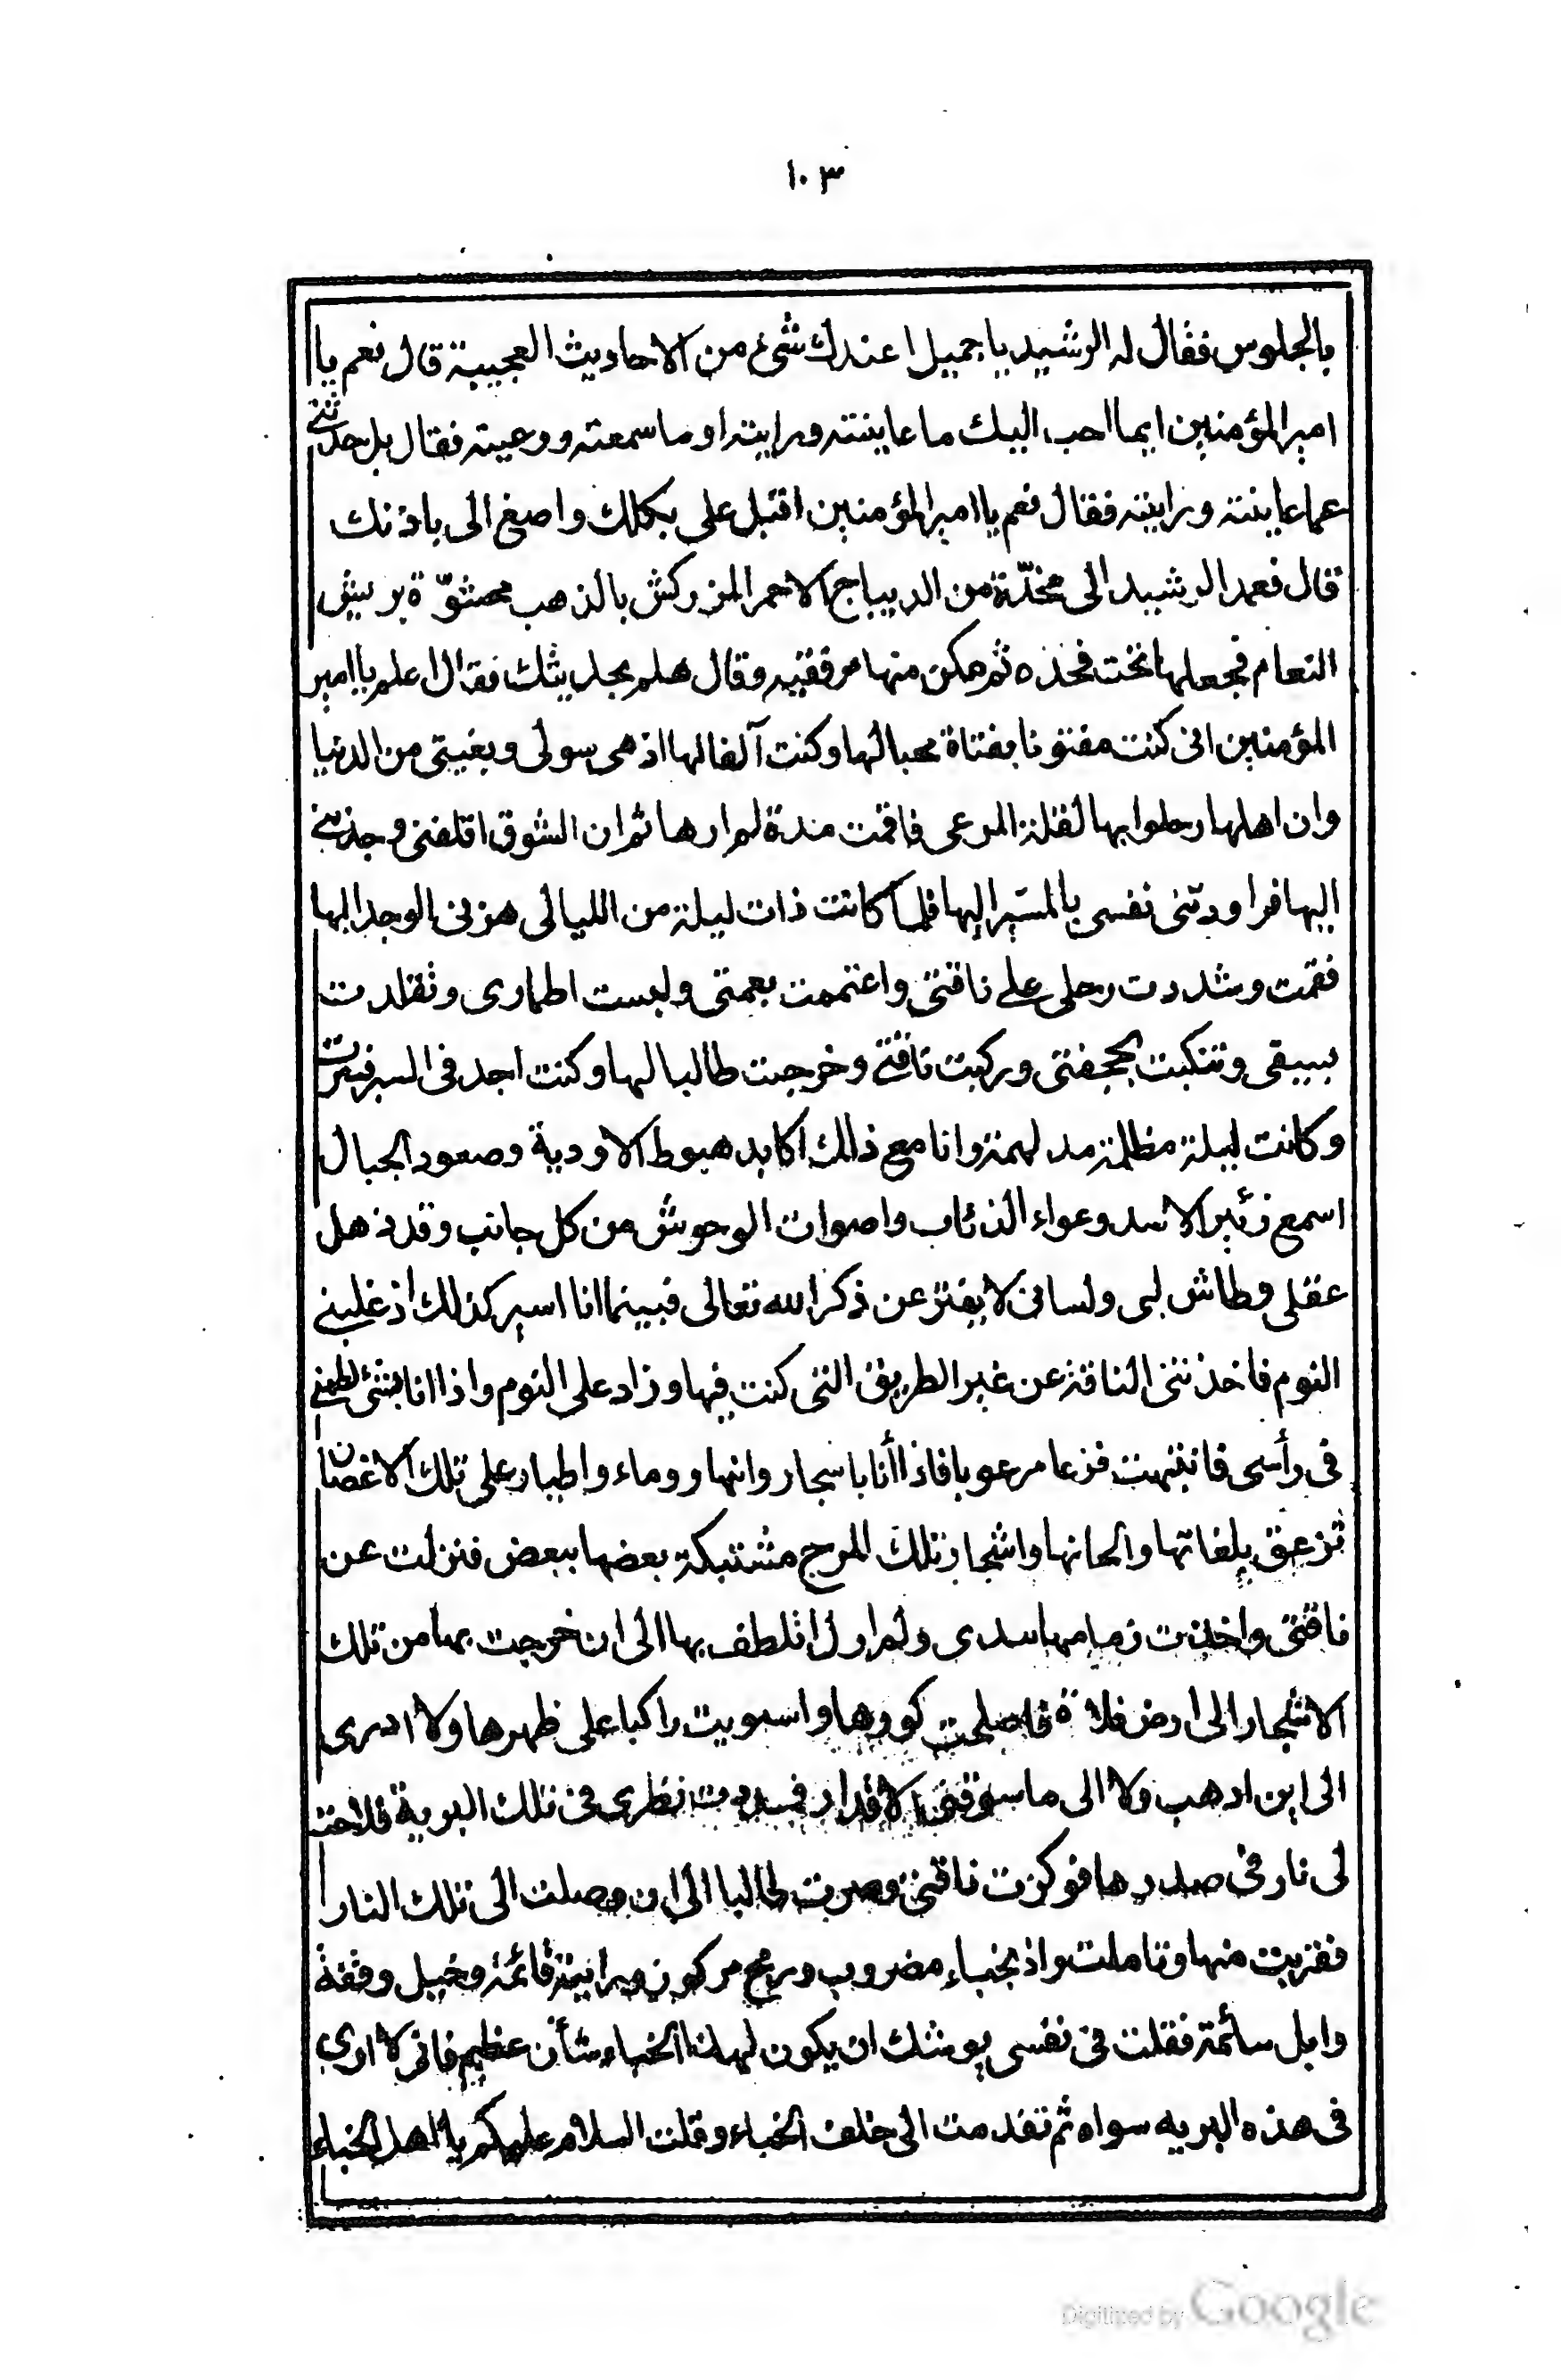 ١٠٣
بالجلوس فقال له الرشيد يا جميل اعندك شىء من الاحاديث العجيبة قال نعم يا
امير المؤمنين ايما احب اليك ما عاينته ورايته او ما سمعته ووعيته فقال بل حدثنى
عما عاينته ورايته فقال نعم يا امير المؤمنين اقبل على بكلك واصغ الى باذنك
قال فعمد الرشيد الى مخدّة من الديباج الاحمر المزركش بالذهب محشوّة بريش
النعام فجعلها تحت فخذه ثم مكن منها مرفقيه وقال هلم بحديثك فقال اعلم يا امير
المؤمنين انى كنت مفتونا بفتاة محبا لها وكنت آلفا لها اذ هى سولى وبغيتى من الدنيا
وان اهلها رحلوا بها لقلة المرعى فاقمت مدة لم ارها ثم ان الشوق اقلقنى وجذبنى
اليها فراودتنى نفسى بالمسير اليها فلما كانت ذات ليلة من الليالى هزنى الوجد اليها
فقمت وشددت رحلى على ناقتى واعتممت بعمتى ولبست اطمارى وتقلدت
بسيفى وتنكبت بحجفتى وركبت ناقتى وخرجت طالبا لها وكنت اجد فى السير فسرت
وكانت ليلة مظلمة مدلهمة وانا مع ذلك اكابد هبوط الاودية وصعود الجبال
اسمع زئير الاسد وعواء الذئاب واصوات الوحوش من كل جانب وقد ذهل
عقلى وطاش لبى ولسانى لا يفتر عن ذكر الله تعالى فبينما انا اسير كذلك اذ غلبنى
النوم فاخذتنى الناقة عن غير الطريق التى كنت فيها وزاد على النوم واذا انا بشئ لطمنى
فى رأسى فانتبهت فزعا مرعوبا فاذا أنا باشجار وانهار وماء واطيار على تلك الاغصان
تزعق بلغاتها والحانها واشجار تلك المرج مشتبكة بعضها ببعض فنزلت عن
ناقتى واخذت زمامها بيدى ولم ازل اتلطف بها الى ان خرجت بها من تلك
الاشجار الى ارض فلاة فاصلحت كورها واستويت راكبا على ظهرها ولا ادرى
الى اين اذهب ولا الى ما تسوقنى الاقدار فمددت نظرى فى تلك البرية فلاحت
لى نار فى صدرها فوكزت ناقتى وصرت طالبا الى ان وصلت الى تلك النار
فقربت منها وتاملت واذ بخباء مضروب ورمح مركوز ورايته قائمة وخيل واقفة
وابل سائمة فقلت فى نفسى يوشك ان يكون لهذا الخباء شأن عظيم فانى لا ارى
فى هذه البريه سواه ثم تقدمت الى خلف الخباء وقلت السلام عليكم يا اهل الخباء
Digitized by Google